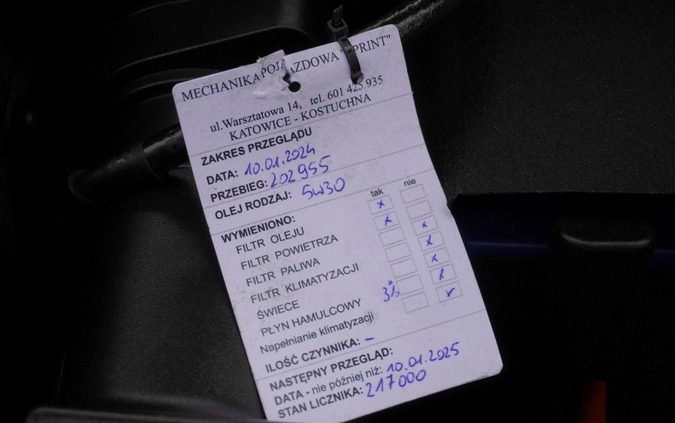 MECHANIKA POJAZDOWA "SPRINT"
ul.Warsztatowa 14, tel. 601 425 935
KATOWICE - KOSTUCHNA
ZAKRES PRZEGLĄDU
DATA: 10.01.2024
PRZEBIEG: 202955
OLEJ RODZAJ: 5W30
WYMIENIONO: tak nie
FILTR OLEJU x
FILTR POWIETRZA x
FILTR PALIWA x
FILTR KLIMATYZACJI x
ŚWIECE x
PŁYN HAMULCOWY 3% x
Napełnianie klimatyzacji v
ILOŚĆ CZYNNIKA: –
NASTĘPNY PRZEGLĄD:
DATA - nie później niż: 10.01.2025
STAN LICZNIKA: 217000